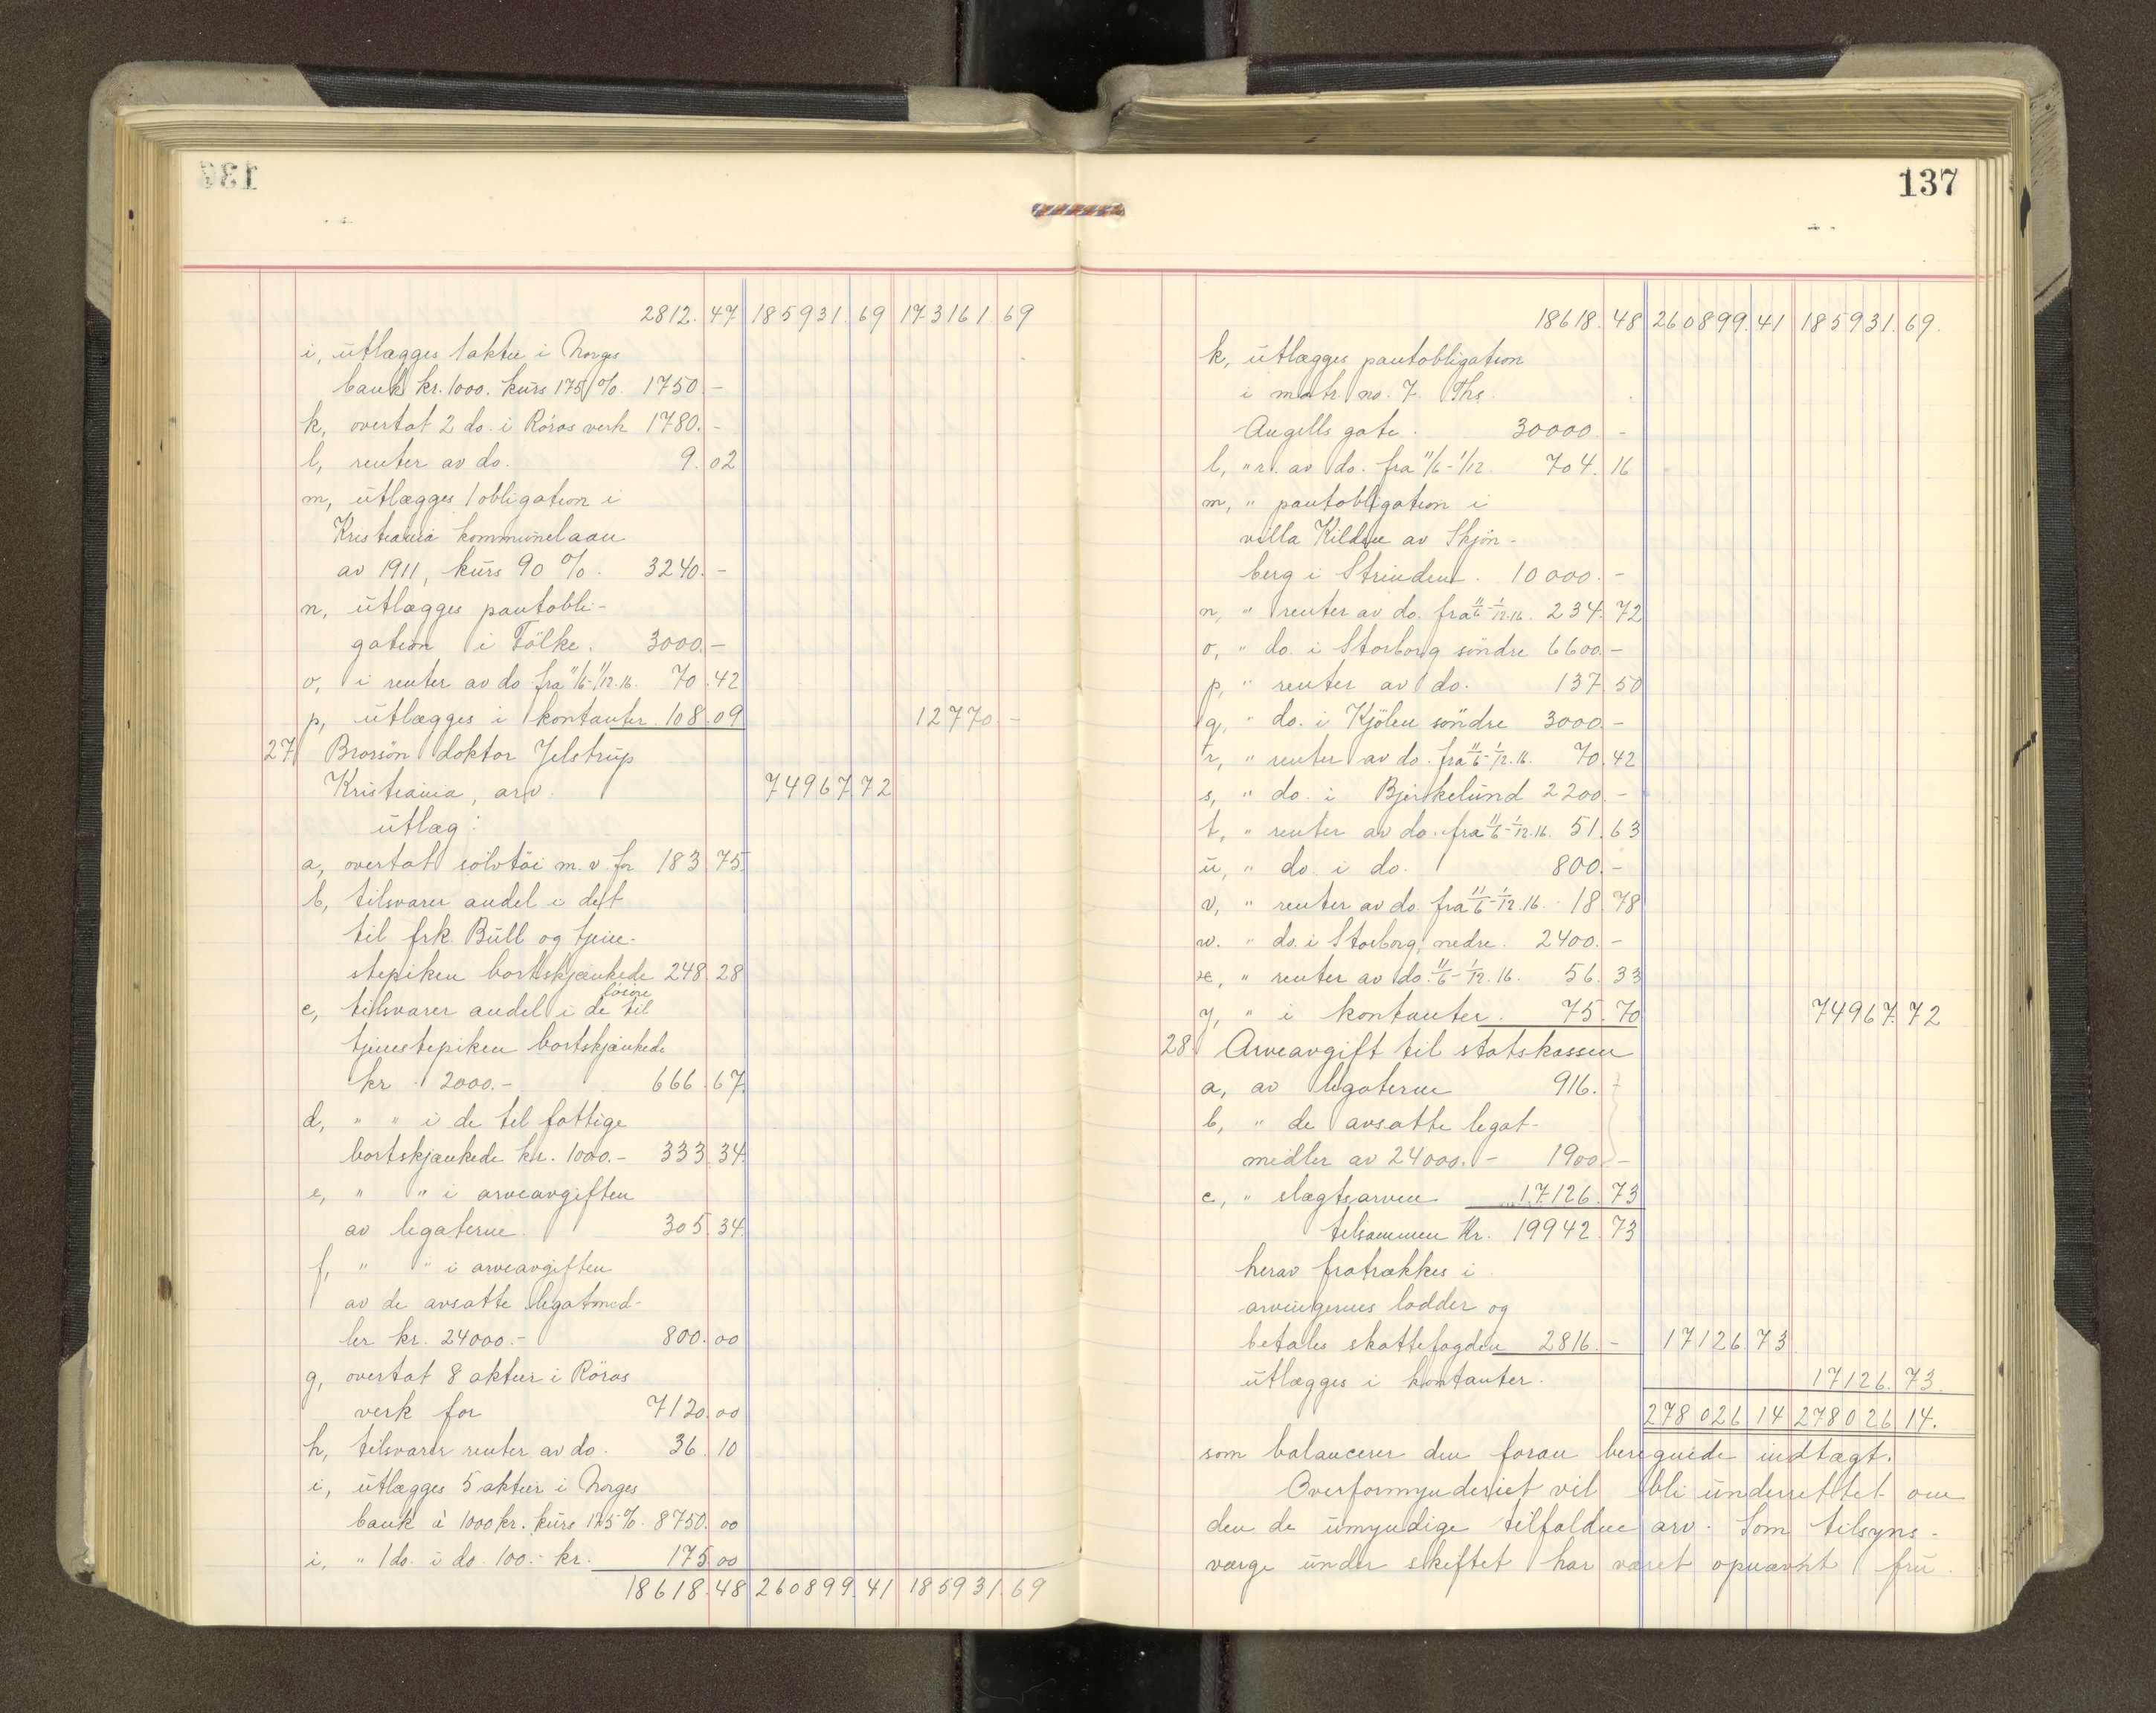 137
2812. 47 185931. 69 173161. 69
i, utlægges 1 aktie i Norges
bank kr. 1000. kurs 175 %. 1750.-
k, overtat 2 do. i Röros verk 1780.-
l, renter av do. 9.02
m, utlægges 1 obligation i
Kristiania kommunelaan
av 1911, kurs 90 %. 3240.-
n, utlægges pantobli-
gation i Fölke. 3000.-
o, i renter av do fra 11/6-1/12.16. 70.42
p, utlægges i kontanter. 108.09 12770.-
27 Brorsön doktor Jelstrup
Kristiania, arv. 74967 72
utlæg:
a, overtat sölvtöi m. v. for 183 75.
b, tilsvarer andel i det
til frk. Bull og tjene-
stepiken bortskjænkede 248 28
lösöre
c, tilsvarer andel i de til
tjenestepiken bortskjænkede
kr 2000.- 666.67.
d, " " i de til fattige
bortskjænkede kr. 1000.- 333.34.
e, " " i arveavgiften
av legaterne. 305.34.
f, " " i arveavgiften
av de avsatte legatmid-
ler kr. 24000.- 800.00
g, overtat 8 aktier i Röros
verk for 7120.00
h, tilsvarer renter av do. 36.10
i, utlægges 5 aktier i Norges
bank à 1000 kr. kurs 175 %. 8750.00
i, " 1 do. i do. 100.- kr. 175 00
18618.48 260899.41 185931.69
137
18618.48 260899.41 185931.69.
k, utlægges pantobligation
i matr. no. 7. Ths.
Angells gate. 30000.-
l, " r. av do. fra 11/6-1/12. 704.16
m, " pantobligation i
villa Kilden av Skjön-
berg i Strinden. 10000.-
n, " renter av do. fra 11/6-1/12.16. 234.72
o, " do. i Storborg söndre 6600.-
p, " renter av do. 137 50
q, " do. i Kjölen söndre 3000.-
r, " renter av do. fra 11/6-1/12.16. 70.42
s, " do. i Bjerkelund 2200.-
t, " renter av do. fra 11/6-1/12.16. 51.63
u, " do. i do. 800.-
v, " renter av do. fra 11/6-1/12.16. 18 78
w. " do. i Storborg, nedre. 2400.-
x, " renter av do. 11/6-1/12.16. 56.33
y, " i kontanter. 75.70 74967.72
28. Arveavgift til statskassen
a, av legaterne 916.
b, " de avsatte legat-
midler av 24000.- 1900.-
c, " slægtsarven 17126.73
tilsammen Kr. 19942.73
herav fratrækkes i
arvingernes lodder og
betales skattefogden 2816.- 17126.73
utlægges i kontanter. 17126.73
278026 14 278026 14.
som balancerer den foran beregnede indtægt.
Overformynderiet vil bli underrettet om
den de umyndige tilfaldne arv. Som tilsyns-
værge under skiftet har været opnævnt fru